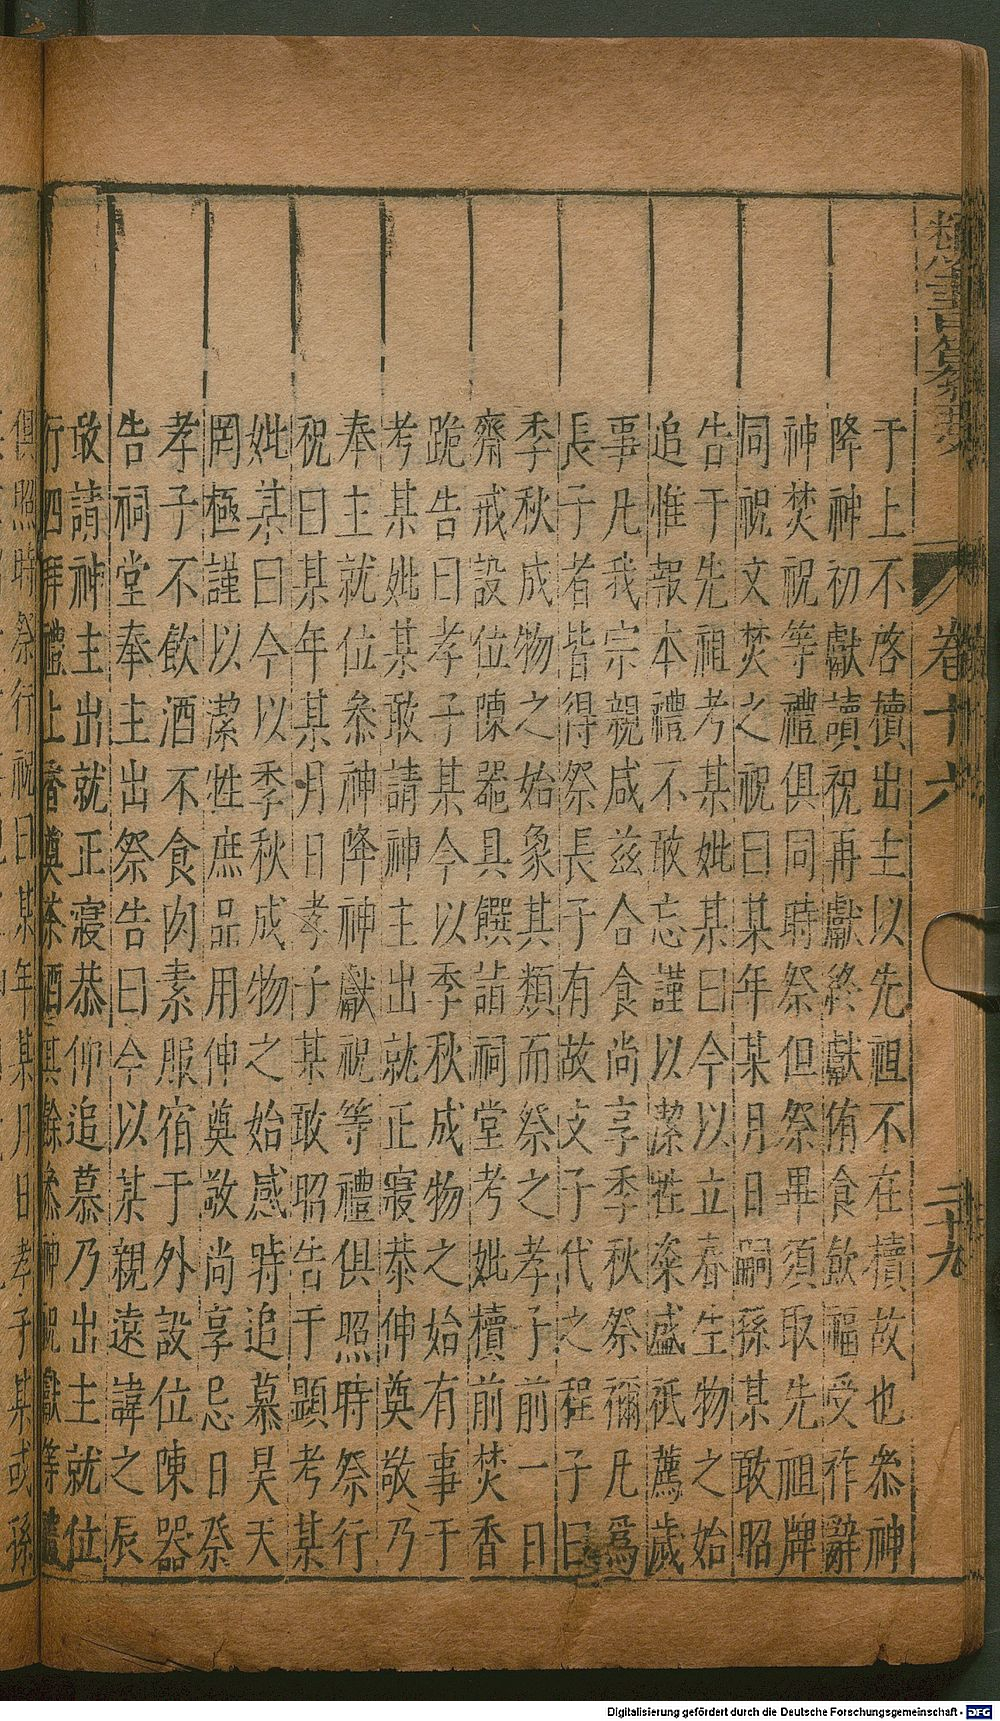 卷十六 二十九
于上不啓櫝出主以先祖不在櫝故也叅神
降神初獻讀祝再獻終獻侑食飲福受祚辭
神焚祝等禮俱同時祭但祭畢須取先祖牌
同祝文焚之祝曰某年某月日嗣孫某敢昭
告于先祖考某妣某曰今以立春生物之始
追惟報本禮不敢忘謹以潔牲粢盛祇薦歲
事凡我宗親咸兹合食尚享季秋祭禰凡爲
長子者皆得祭長子有故支子代之程子曰
季秋成物之始象其類而祭之孝子前一日
齋戒設位陳器具饌詣祠堂考妣櫝前焚香
跪告曰孝子某今以季秋成物之始有事于
考某妣某敢請神主出就正寢恭伸奠敬乃
奉主就位叅神降神獻祝等禮俱照時祭行
祝曰某年某月日孝子某敢昭告于顯考某
妣某曰今以季秋成物之始感時追慕昊天
罔極謹以潔牲庶品用伸奠敬尚享忌日祭
孝子不飲酒不食肉素服宿于外設位陳器
告祠堂奉主出祭告曰今以某親遠諱之辰
敢請神主出就正寢恭仰追慕乃出主就位
行四拜禮上香奠茶酒其餘叅神祝獻等禮
但照時祭行祝曰某年某月日孝子某或孫
Digitalisierung gefördert durch die Deutsche Forschungsgemeinschaft - DFG